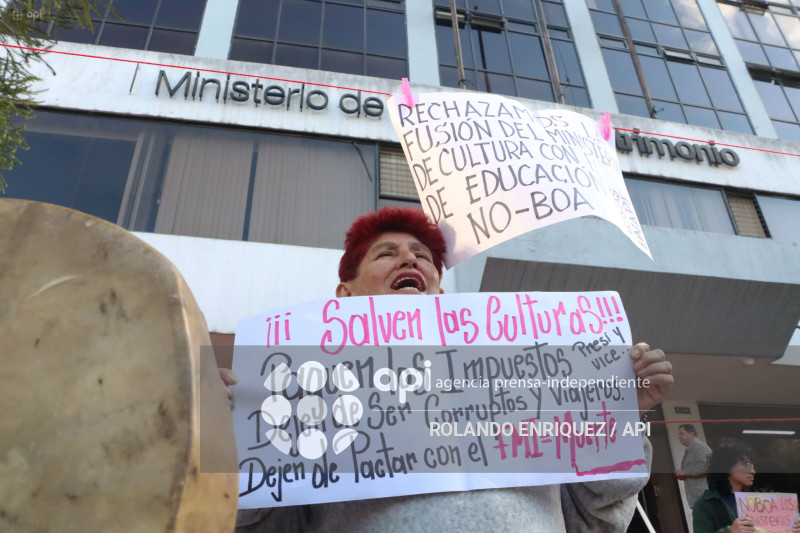 api
Ministerio de
trimonio
RECHAZAMOS LA
FUSIÓN DEL MINISTERIO
DE CULTURA CON
DE EDUCACIÓN
NO-BOA
¡¡¡ Salven las Culturas!!!
los Impuestos Presi y vice.
Dejen de Ser Corruptos y viajeros.
Dejen de Pactar con el FMI=Muerte
api agencia prensa-independiente
ROLANDO ENRIQUEZ / API
NOBOA LOS